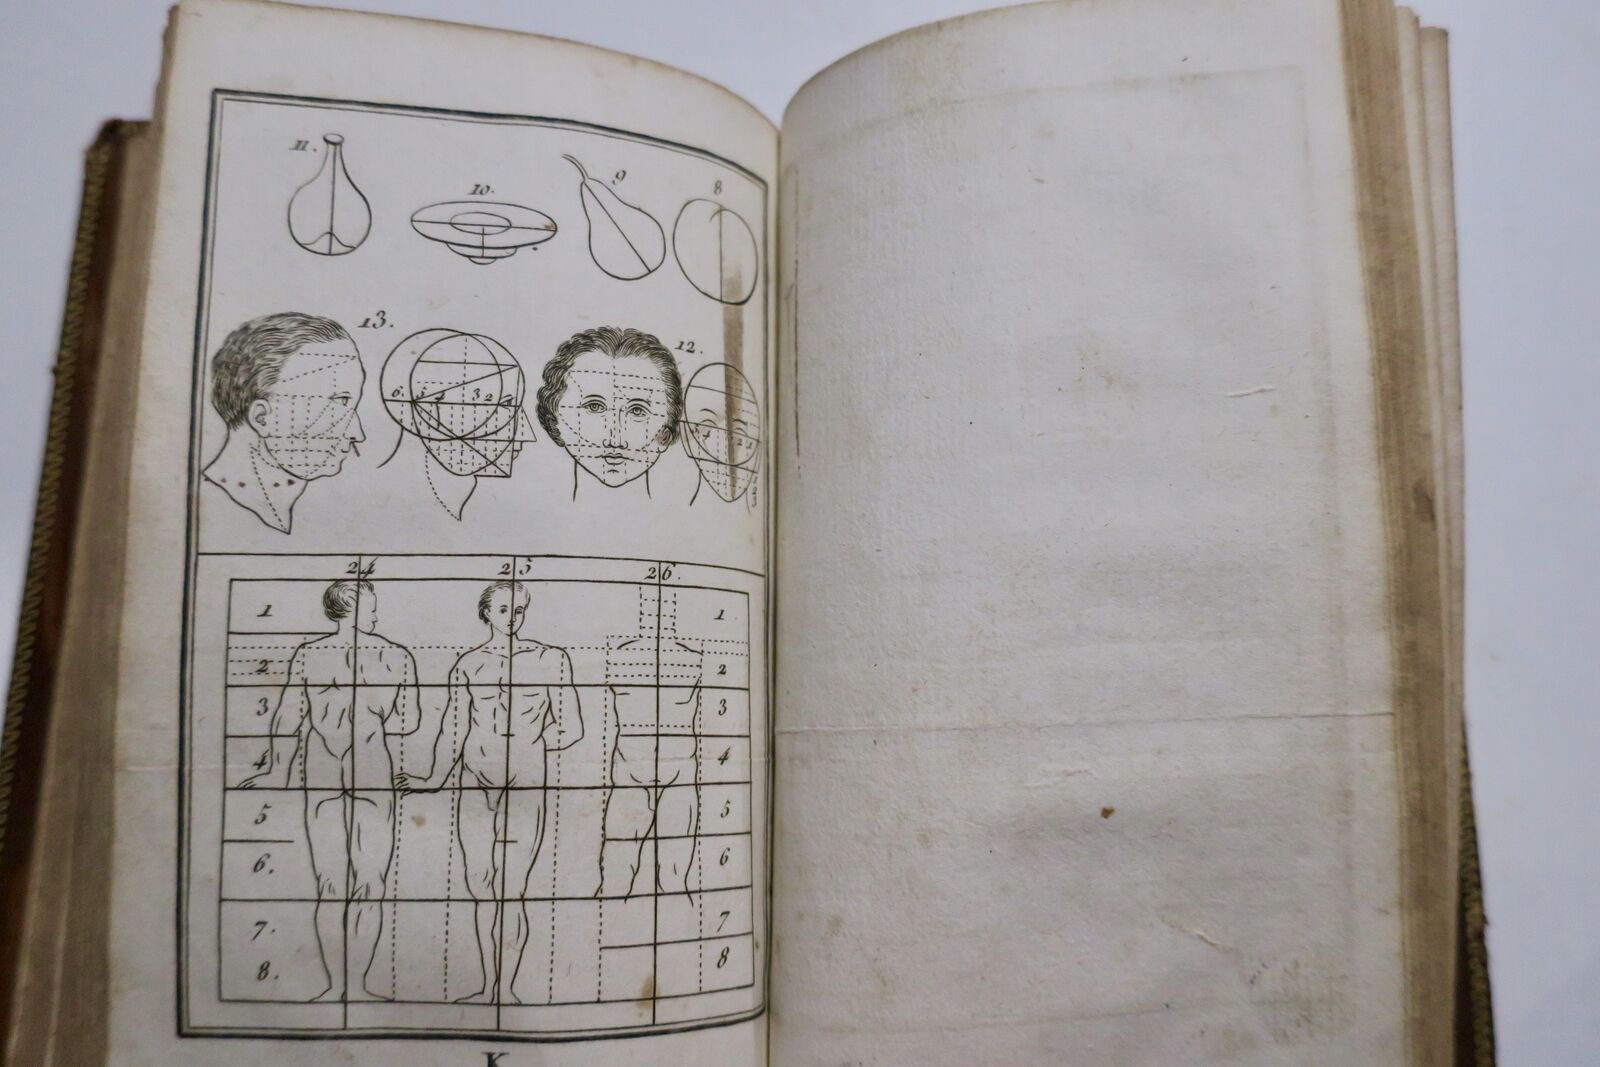 11.
10.
9
8
13.
12.
6 3 2
24
25
26.
1
2
3
4
5
6.
7.
8.
1
2
3
4
5
6
7
8
K